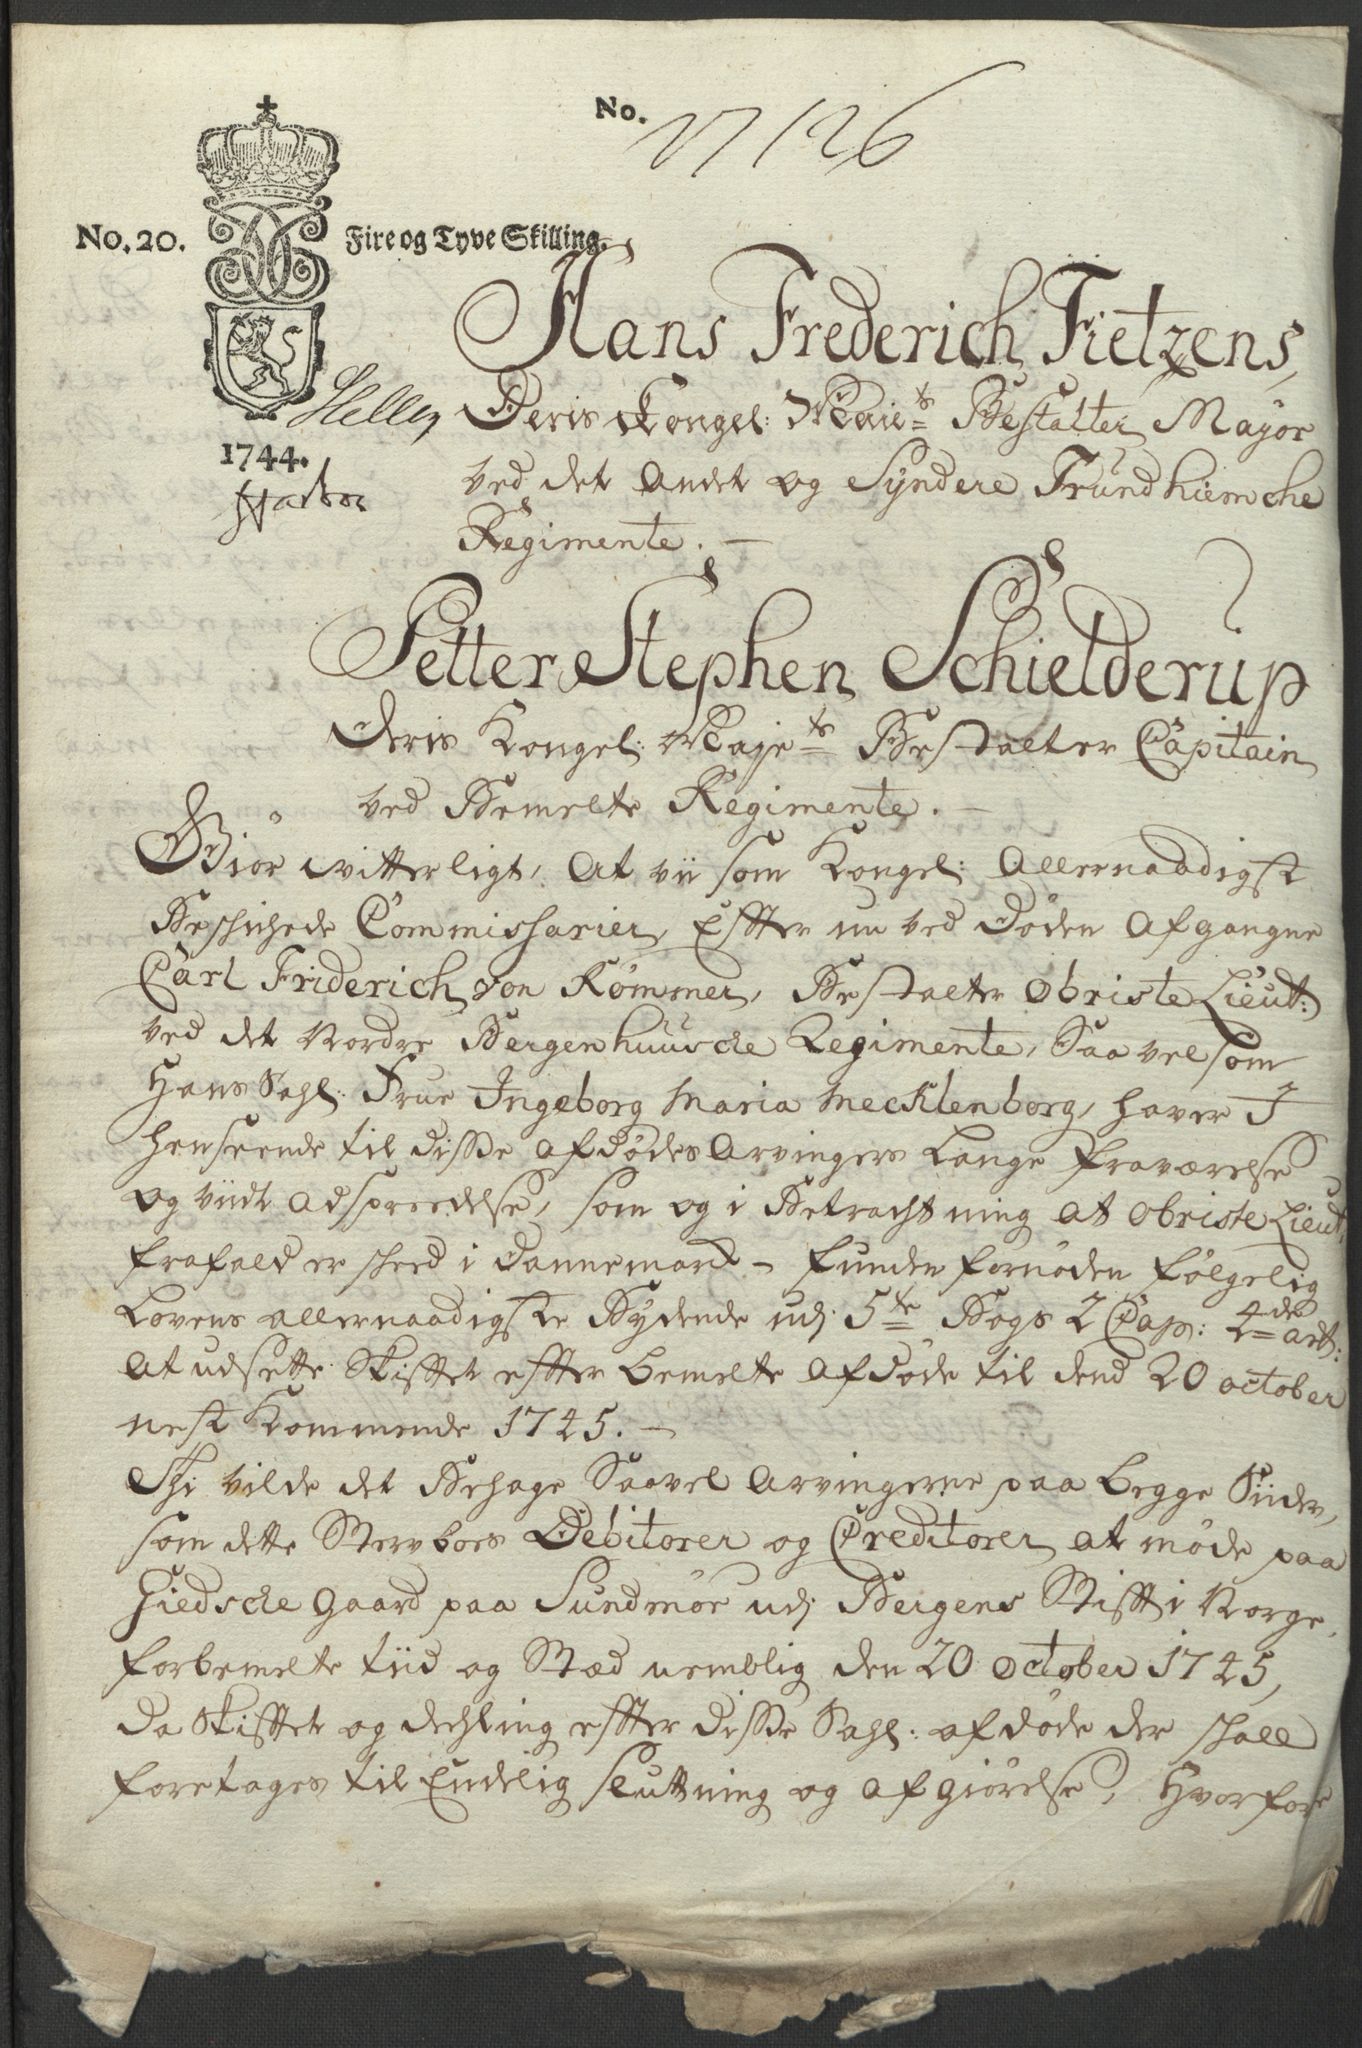 No. 17126
No. 20. Fire og Tyve Skilling.
Hans Frederich Fietzens,
Heller Deris Kongel: Maie^ts Bestalter Mayor
1744.
ved det Andet og Syndere Trundhiemche
Regimente. —
Petter Stephen Schielderup
Deris Kongel: Maje^ts Bestalter Capitain
ved Bemelte Regimente. —
Giör vitterligt, At vii som Kongel: Allernaadigst
Beschichede Commissarier, Effter nu ved Döden Afgangne
Carl Friderich von Römmer, Bestalter Obriste Lieut:
ved det Nordre Bergenhuusche Regimente, Saavelsom
Hans Sahl: Frue Ingeborg Maria Mecklenborg, haver I
henseende til Disse afdödes Arvingers Lange fraværelse
og viidt Adspreedelse, som og i Betrachtning at Obriste Lieut:
frafald er scheed i Dannemark – funden fornöden fölgelig
Lovens allernaadigste Bydende udj 5^te Bogs 2 Cap: 4^de art:
At udsette Skifftet effter bemelte Afdöde til dend 20 october
nest Kommende 1745. —
Thi vilde det Behage Saavel Arvingerne paa begge Siider,
som dette Sterfboes Debitorer og Creditorer at möde paa
Giedsche gaard paa Sundmör udj Bergens Stifft i Norge,
forbemelte tiid og Stæd nemblig den 20 october 1745,
da Skifftet og dehling effter disse Sahl: afdöde der schall
foretages til Endelig sluttning og afgiörelse, Hvorfore